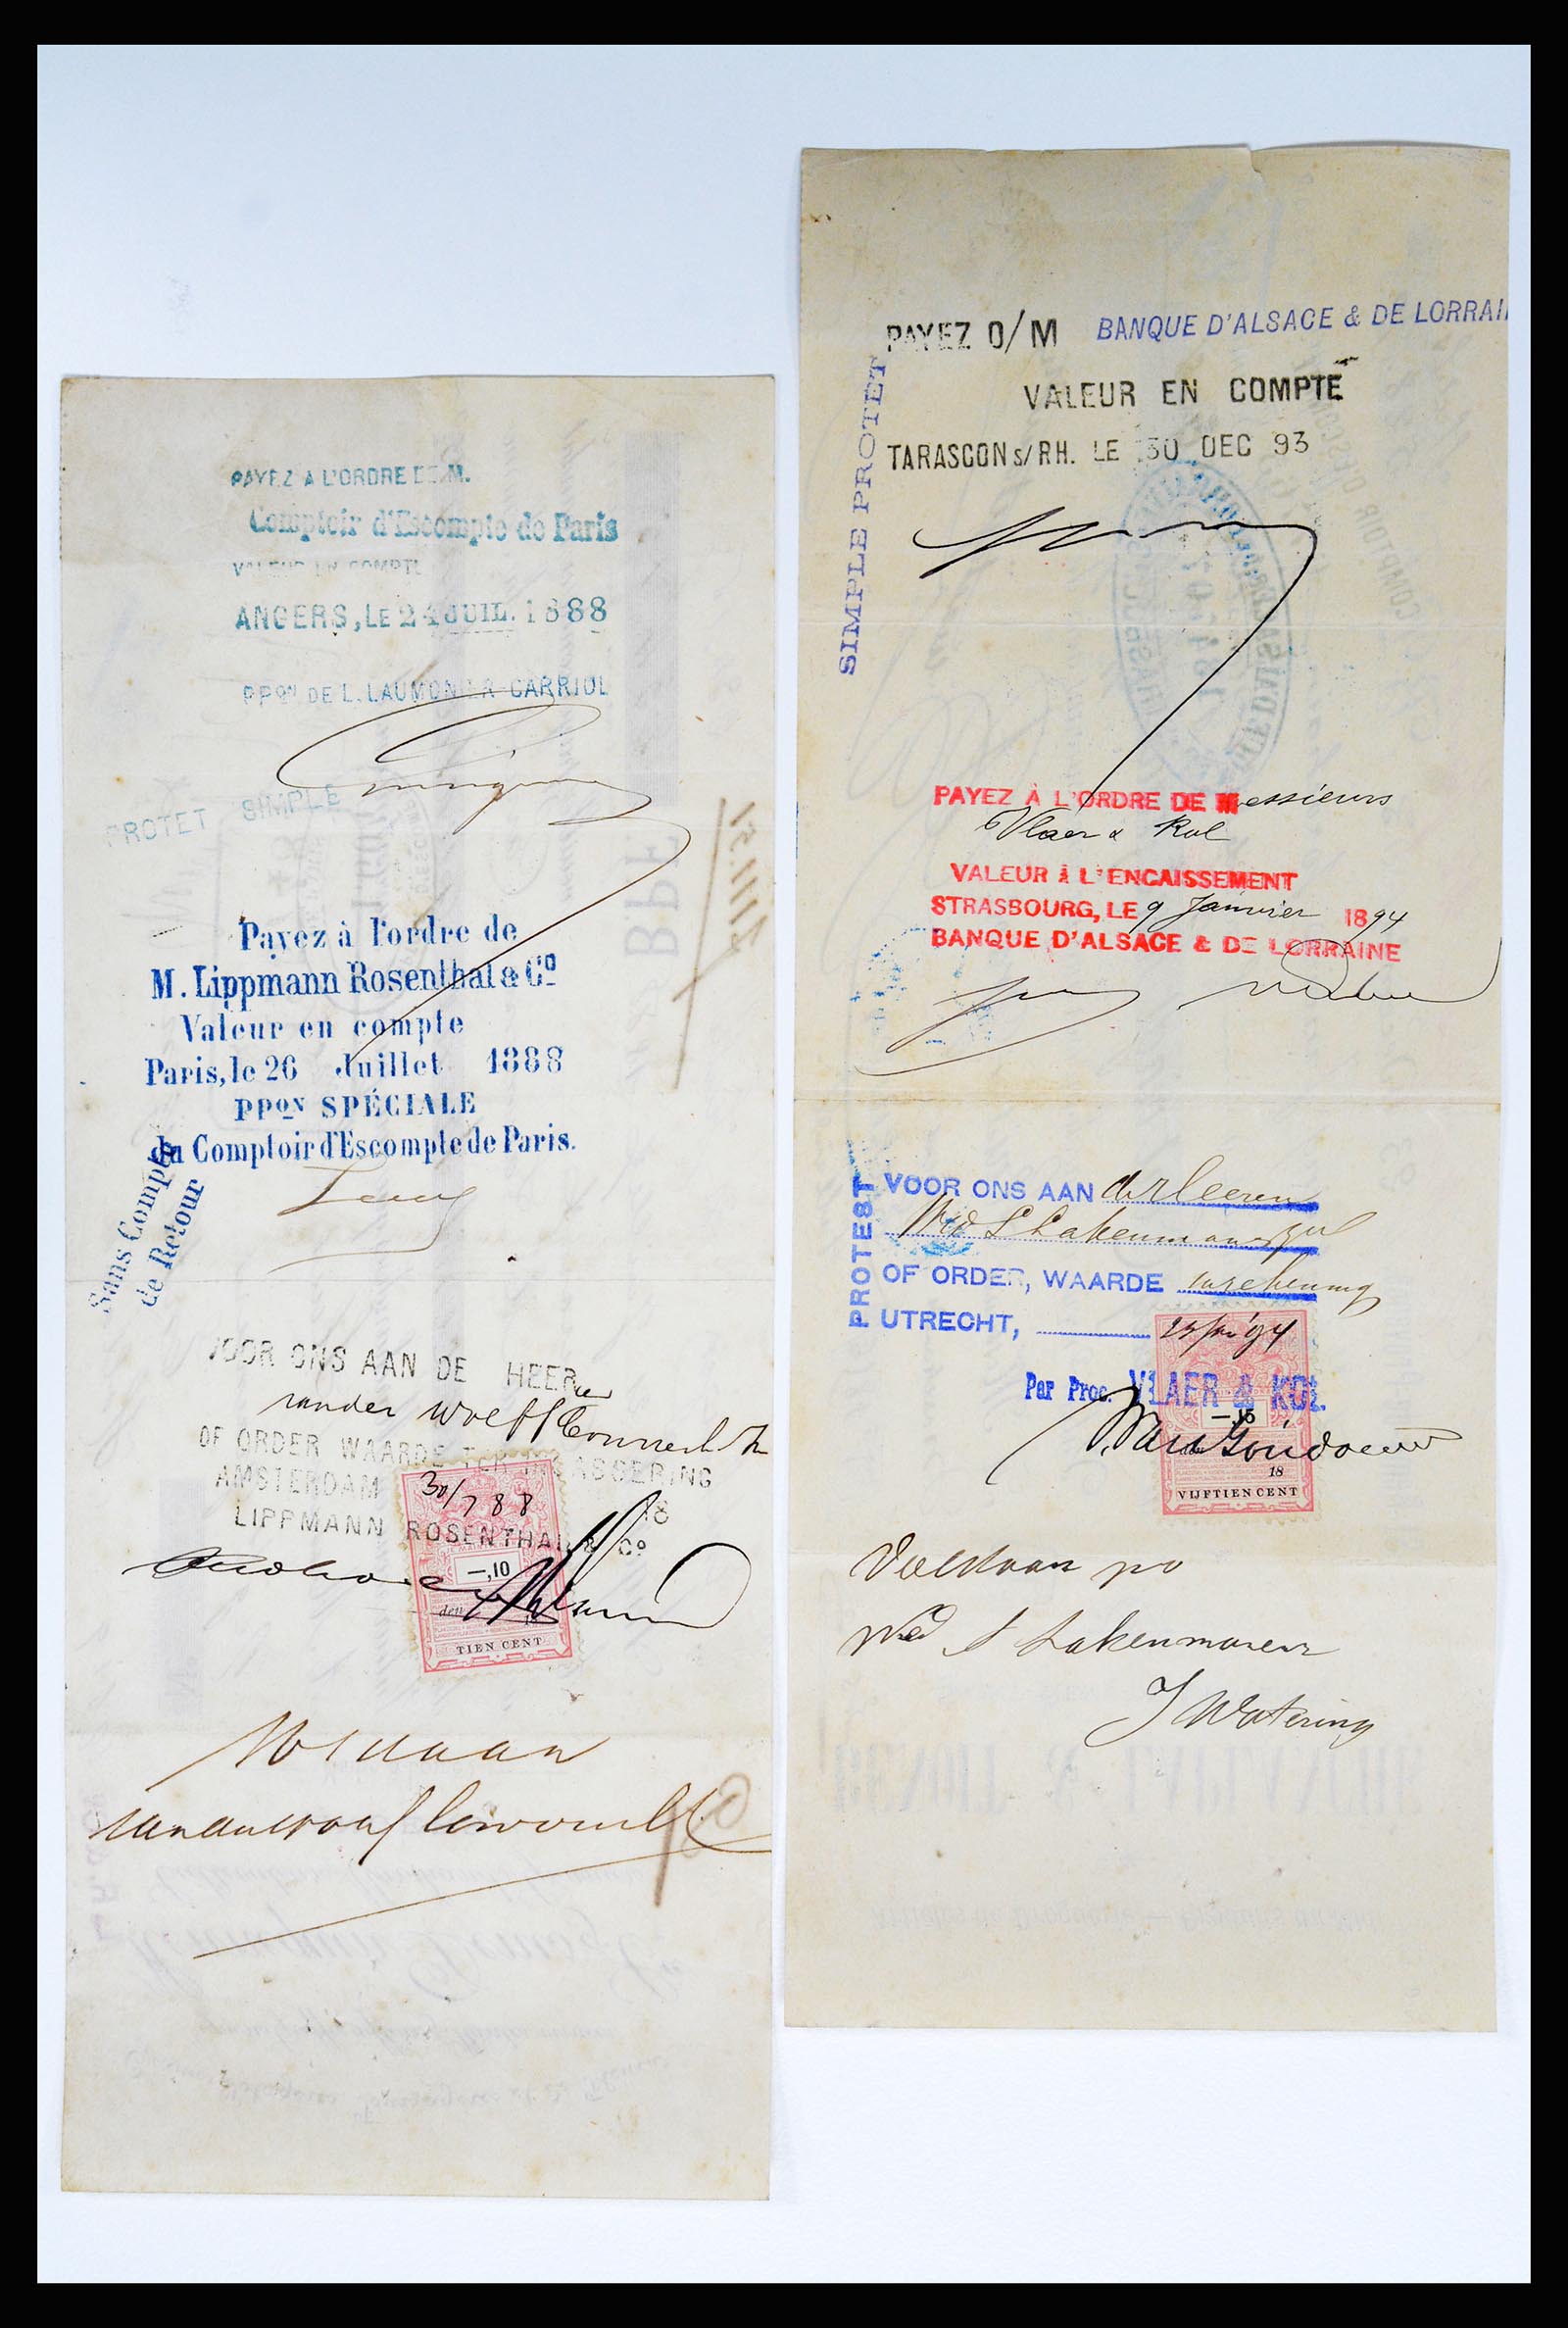 PAYEZ A L'ORDRE DE M.
Comptoir d'Escompte de Paris
VALEUR EN COMPTE
ANGERS, LE 24 JUIL. 1888
PPON DE L. LAUMONIER-CARRIOL
PROTET SIMPLE
Payez à l'ordre de
M. Lippmann Rosenthal & Co
Valeur en compte
Paris, le 26 Juillet 1888
PPON SPÉCIALE
du Comptoir d'Escompte de Paris.
Sans Compte
de Retour
VOOR ONS AAN DE HEER
van der
OF ORDER WAARDE TER INCASSERING
AMSTERDAM 18
LIPPMANN ROSENTHAL & Co
30/7 88
-,10
den 18
TIEN CENT
Voldaan
PAYEZ O/M BANQUE D'ALSACE & DE LORRAI
VALEUR EN COMPTE
TARASCON s/RH. LE 30 DEC 93
SIMPLE PROTET
PAYEZ À L'ORDRE DE Messieurs
Vlaer & Kol
VALEUR À L'ENCAISSEMENT
STRASBOURG, LE 9 Janvier 1894
BANQUE D'ALSACE & DE LORRAINE
PROTEST
VOOR ONS AAN de Heeren
Wed S Lakenman
OF ORDER, WAARDE in rekening
UTRECHT,
Per Proc. VLAER & KOL.
-,15
18
VIJFTIEN CENT
Voldaan po
Wed S Lakenman
J Watering